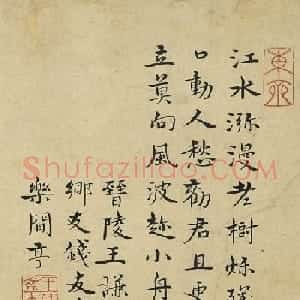 江水渺漫老樹蛛瑛
口動人愁勸君且更
立莫向風波趂小舟
晉陵王謙
鄉友錢友
樂閒亭
Shufaziliao.com